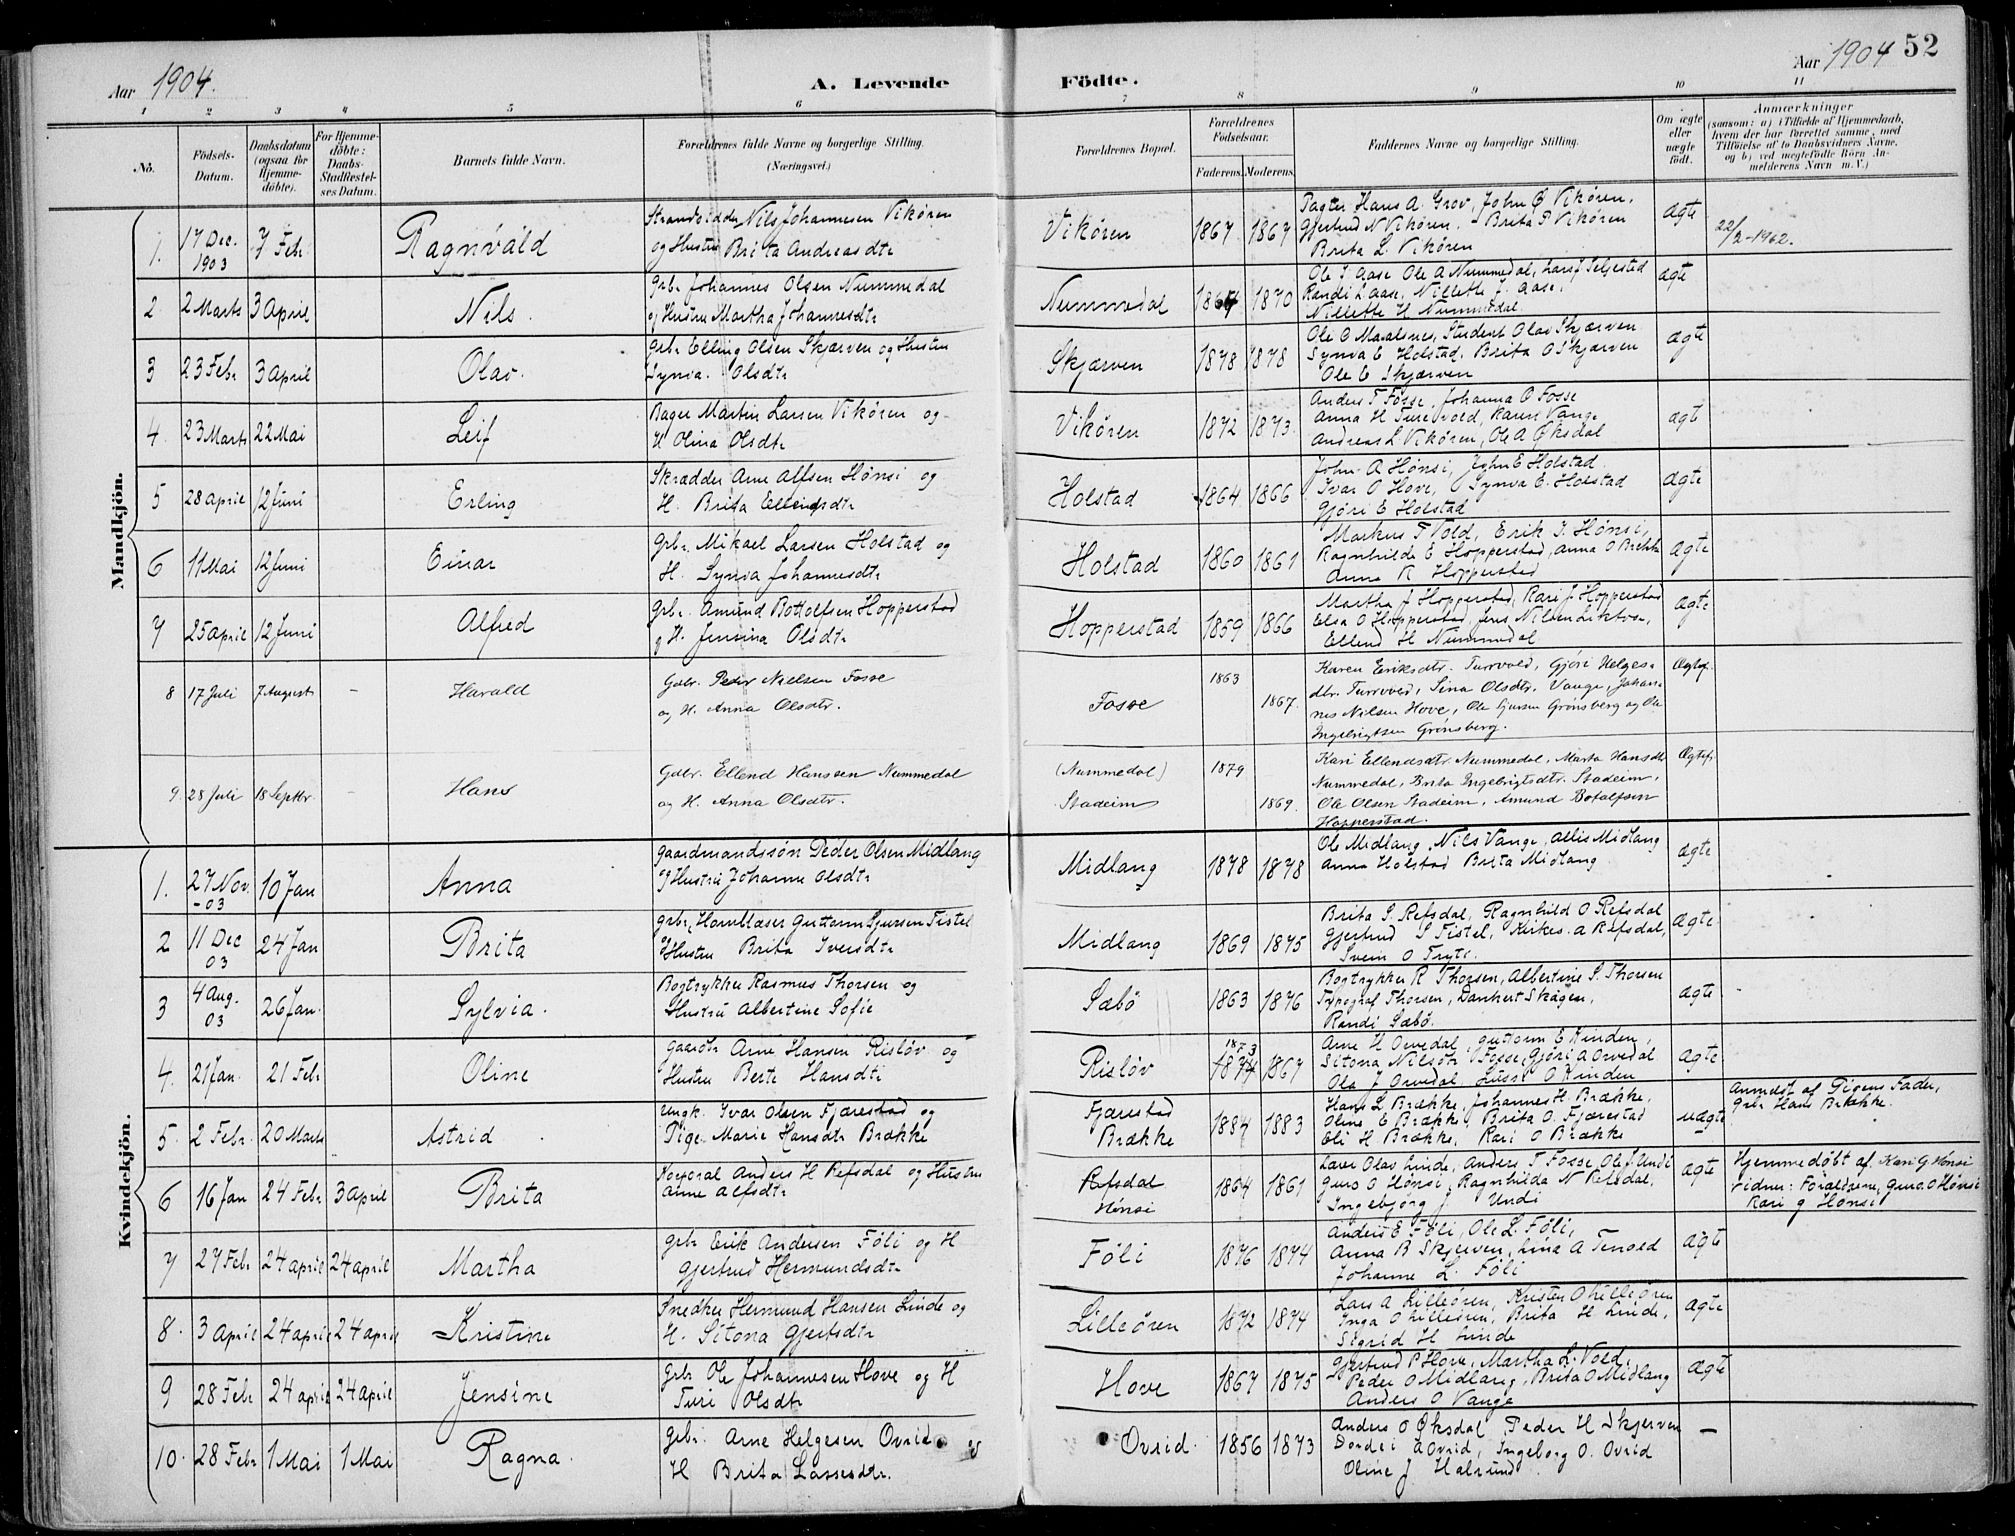 Aar 1904.
A. Levende Födte.
Aar 1904
52
1 2 3 4 5 6 7 8 9 10 11
No.
Födsels-Datum.
Daabsdatum (ogsaa for Hjemme-döbte).
For Hjemme-döbte: Daabs-Stadfæstel-ses Datum.
Barnets fulde Navn.
Forældrenes fulde Navne og borgerlige Stilling. (Næringsvei.)
Forældrenes Bopæl.
Forældrenes Födselsaar.
Faderens. Moderens.
Faddernes Navne og borgerlige Stilling.
Om ægte eller uægte födt.
Anmærkninger
(saasom: a) i Tilfælde af Hjemmedaab, hvem der har forrettet samme, med Tilföielse af to Daabsvidners Navne, og b) ved uegtefödte Börn An-melderens Navn m. V.)
Mandkjön.
1. 17 Dec. 1903 7 Febr Ragnvald
Strandsidder Nils Johannesen Vikøren
og Hustru Brita Andreasdtr
Vikøren 1867 1867
Pagter Hans A. Grov, John O Vikøren,
Gjertrud N Vikøren. Brita P Vikøren
Brita L. Vikøren
ægte
22/2-1962.
2 2 Marts 3 April Nils.
Grbr Johannes Olsen Nummedal
og Hustru Martha Johannesdtr
Nummedal 1870
Ole I Aase Ole A Nummedal, Lars J Seljestad
Randi L Aase, Nillette J. Aase,
Nillette H Nummedal.
ægte
3 23 Febr 3 April Olav.
Grbr Elling Olsen Skjærven og Hustru
Synva. Olsdtr
Skjærven 1878 1878
Ole O Maalsnes, Student Olav Skjærven
Synva E Holstad. Brita O Skjærven
Ole E Skjærven
ægte
4 23 Marts 22 Mai Leif
Bager Martin Larsen Vikøren og
H Olina Olsdtr
Vikøren 1872 1873
Anders T Fosse, Johanna O Fosse
Anna H Turvold, Karen Vange
Andreas L Vikøren, Ole A Øksdal
ægt
5 28 April 12 Juni Erling
Skrædder Arne Alfsen Hønsi og
H. Brita Ellendsdtr
Holstad 1864 1866
John A Hønsi, John E Holstad
Ivar O Hove, Synva E. Holstad
Gjøri E Holstad
ægte
6 11 Mai 12 Juni Einar
Grbr. Mikael Larsen Holstad og
H. Synva Johannesdtr
Holstad 1860 1861
Markus T Vold, Erik I. Hønsi,
Ragnhilde E Hopperstad, Anna O Brekke
Anna R Hopperstad
ægte
7 25 April 12 Juni Alfred
Grbr. Amund Bottolfsen Hopperstad
og H. Jensina Olsdtr
Hopperstad 1859 1866
Martha J Hopperstad, Kari J Hopperstad
Elsa O Hopperstad, Jens Nilsen
Ellend H Nummedal
ægte
8 17 Juli 7 August - Harald
Gdbr. Peder Nielsen Fosse
og H. Anna Olsdtr.
Fosse 1863 1867.
Karen Eriksdtr. Turvold, Gjøri Helges-
dtr. Turvold, Sina Olsdtr. Vange, Johan-
nes Nilsen Hove, Ole Gjursen Grønsberg og Ole
Ingebrigtsen Grønsberg.
Ægtef.
9. 28 Juli 18 Septbr. - Hans
Gdbr. Ellend Hanssen Nummedal
og H. Anna Olsdtr.
(Nummedal)
Stadeim 1879 1869.
Kari Ellendsdtr. Nummedal, Marta Hansdtr.
Nummedal, Brita Ingebrigtsdtr. Stadeim,
Ole Olsen Stadeim, Amund Botolfsen
Hopperstad.
Ægtef.
Kvindekjön.
1. 27 Nov. -03 10 Jan Anna
Gaardmandssøn Peder Olsen Midlang
og Hustru Johanne Olsdtr
Midlang 1878 1878
Ole Midlang, Nils Vange, Allis Midlang
Anna Holstad Brita Midlang
ægte
2 11 Dec 03 24 Jan Brita
grbr, Hornblæser Guttorm Sjursen Tistel
og Hustru Brita Iversdtr
Midlang 1869 1875
Brita S. Refsdal, Ragnhild O Refsdal
Gjertrud S Tistel, Kirkes. A Refsdal,
Svein O Tryti.
Ægte
3 4 Aug. 03 26 Jan. Sylvia.
Bogtrykker Rasmus Thorsen og
Hustru Albertine Sofie
Sæbö 1863 1876
Bogtrykker R Thorsen, Albertine S. Thorsen
Typograf Thorsen, Dankert Skagen,
Randi Sæbø.
ægte
4. 21 Jan. 21 Febr Oline
Gaardbr Arne Hansen Risløv og
Hustru Berte Hansdtr
Risløv 1873 1874 1867
Arne H Orvedal, Guttorm E Hinden,
Sitona Nilsdtr Fosse, Gjøri A Orvedal
Ola J Orvedal Lussi O Hinden
ægte
5. 2 Febr. 20 Marts Astrid
Ungk. Ivar Olsen Fjærestad og
Pige Marie Hansdtr Brække
Fjærestad
Brække 1884 1883
Hans L Brække, Johannes H. Brække,
Oline E Brække, Brita O Fjærestad
Eli H Brække, Kari O Brække
uægte
Anmeldt af Pigens Fader,
grbr Hans Brække
6 16 Jan 24 Febr 3 April Brita
Korporal Anders H Refsdal og Hustru
Anne Alfsdtr
Refsdal
Hønsi 1864 1861
Lærer Olav Linde, Anders T Fosse, Ole J Undi
Guro O Hønsi, Ragnhilda N Refsdal,
Ingebjørg J Undi
ægte
Hjemmedøbt af. Kari G Hønsi
Vidner: Forældrene, Guro O Hønsi
Kari G Hønsi
7 27 Febr 24 April 24 April Martha
grbr Erik Andersen Føli og H
Gjertrud Hermundsdtr
Føli 1876 1874
Anders E Føli, Ole L. Føli,
Anna B Skjerven, Lina A Tenold
Johanne L. Føli
ægte
8. 3 April 24 April 24 April Kristine
Snedker Hermund Hansen Linde og
H. Sitona Gjertsdtr
Lilleøren 1872 1874
Lars A Lilleøren, Kristen O Lilleøren
Inga O Lilleøren, Brita H Linde,
Sigrid H Linde
ægte
9 28 Febr 24 April 24 April Jensine
Grbr Ole Johannesen Hove og H
Turi Olsdtr
Hove 1867 1875
Gjertrud P Hove, Martha L. Vold,
Peder O Midlang, Brita O Midlang
Anders O Vange
ægte
10. 28 Febr 1 Mai 1 Mai Ragna.
Grbr. Arne Helgesen Ovrid og
H Brita Lassesdtr.
Ovrid. 1856 1873
Anders O Øksdal, Peder H Skjerven
Dordei A Ovrid, Ingeborg O. Ovrid
Oline J Halsund
—